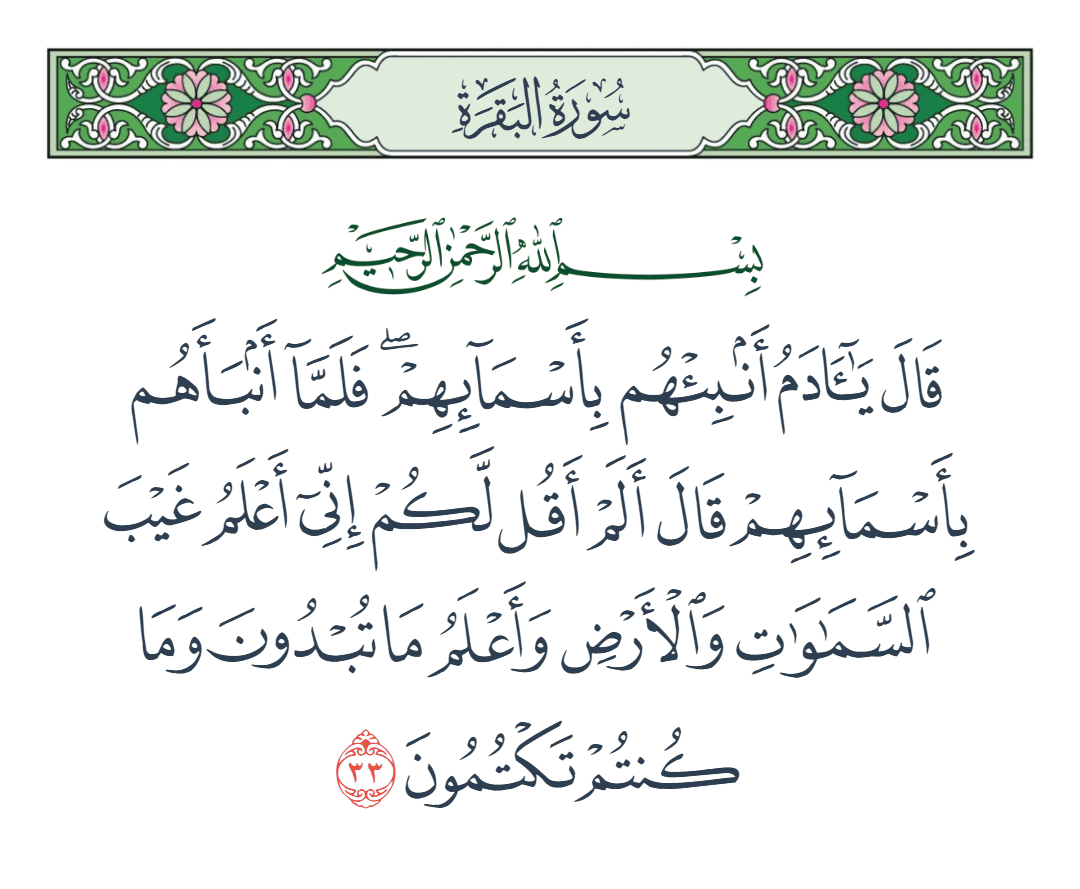 سُورَةُ البَقَرَةِ
بِسْمِ ٱللَّهِ ٱلرَّحْمَٰنِ ٱلرَّحِيمِ
قَالَ يَـٰٓـَٔادَمُ أَنۢبِئْهُم بِأَسْمَآئِهِمْ ۖ فَلَمَّآ أَنۢبَأَهُم
بِأَسْمَآئِهِمْ قَالَ أَلَمْ أَقُل لَّكُمْ إِنِّىٓ أَعْلَمُ غَيْبَ
ٱلسَّمَـٰوَٰتِ وَٱلْأَرْضِ وَأَعْلَمُ مَا تُبْدُونَ وَمَا
كُنتُمْ تَكْتُمُونَ ٣٣